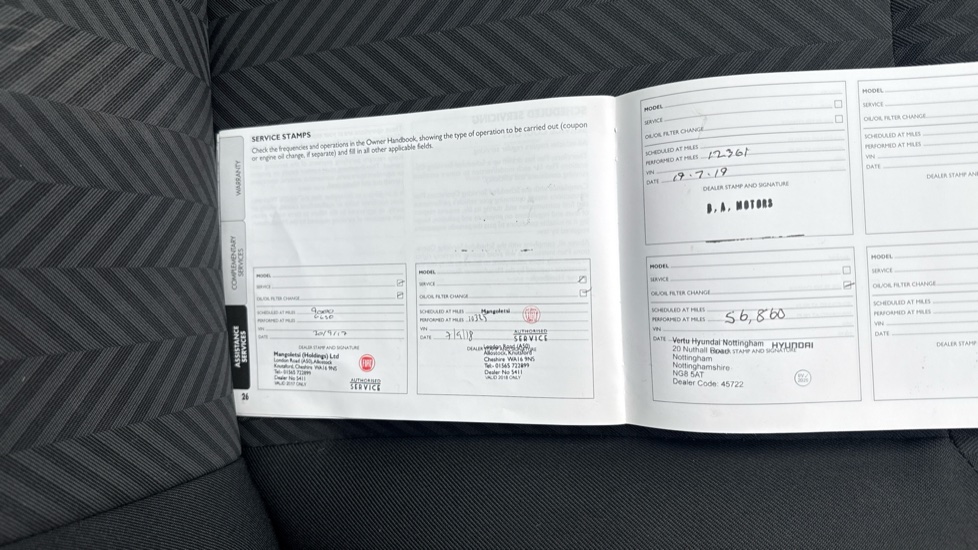 SERVICE STAMPS
Check the frequencies and operations in the Owner Handbook, showing the type of operation to be carried out (coupon
or engine oil change, if separate) and fill in all other applicable fields.
WARRANTY
COMPLEMENTARY
SERVICES
ASSISTANCE
SERVICES
MODEL
SERVICE
OIL/OIL FILTER CHANGE
SCHEDULED AT MILES
PERFORMED AT MILES
VIN
DATE 20/9/17
DEALER STAMP AND SIGNATURE
Mangoletsi (Holdings) Ltd
London Road (A50), Allostock
Knutsford, Cheshire WA16 9NS
Tel:- 01565 722899
Dealer No 5411
VALID 2017 ONLY
FIAT
AUTHORISED
SERVICE
26
MODEL
SERVICE
OIL/OIL FILTER CHANGE
SCHEDULED AT MILES Mangoletsi
PERFORMED AT MILES
VIN
DATE
DEALER
London Road (A50)
Allostock, Knutsford
Cheshire WA16 9NS
Tel:- 01565 722899
Dealer No 5411
VALID 2018 ONLY
AUTHORISED
SERVICE
MODEL
SERVICE
OIL/OIL FILTER CHANGE
SCHEDULED AT MILES
PERFORMED AT MILES 12361
VIN
DATE 19.7.19
DEALER STAMP AND SIGNATURE
D.A. MOTORS
MODEL
SERVICE
OIL/OIL FILTER CHANGE
SCHEDULED AT MILES
PERFORMED AT MILES 56,860
VIN
DATE Vertu Hyundai Nottingham HYUNDAI
20 Nuthall Road STAMP AND SIGNATURE
Nottingham
Nottinghamshire
NG8 5AT
Dealer Code: 45722
MODEL
SERVICE
OIL/OIL FILTER CHANGE
SCHEDULED AT MILES
PERFORMED AT MILES
VIN
DATE
DEALER STAMP AN
MODEL
SERVICE
OIL/OIL FILTER CHANGE
SCHEDULED AT MILES
PERFORMED AT MILES
VIN
DATE
DEALER STAMP